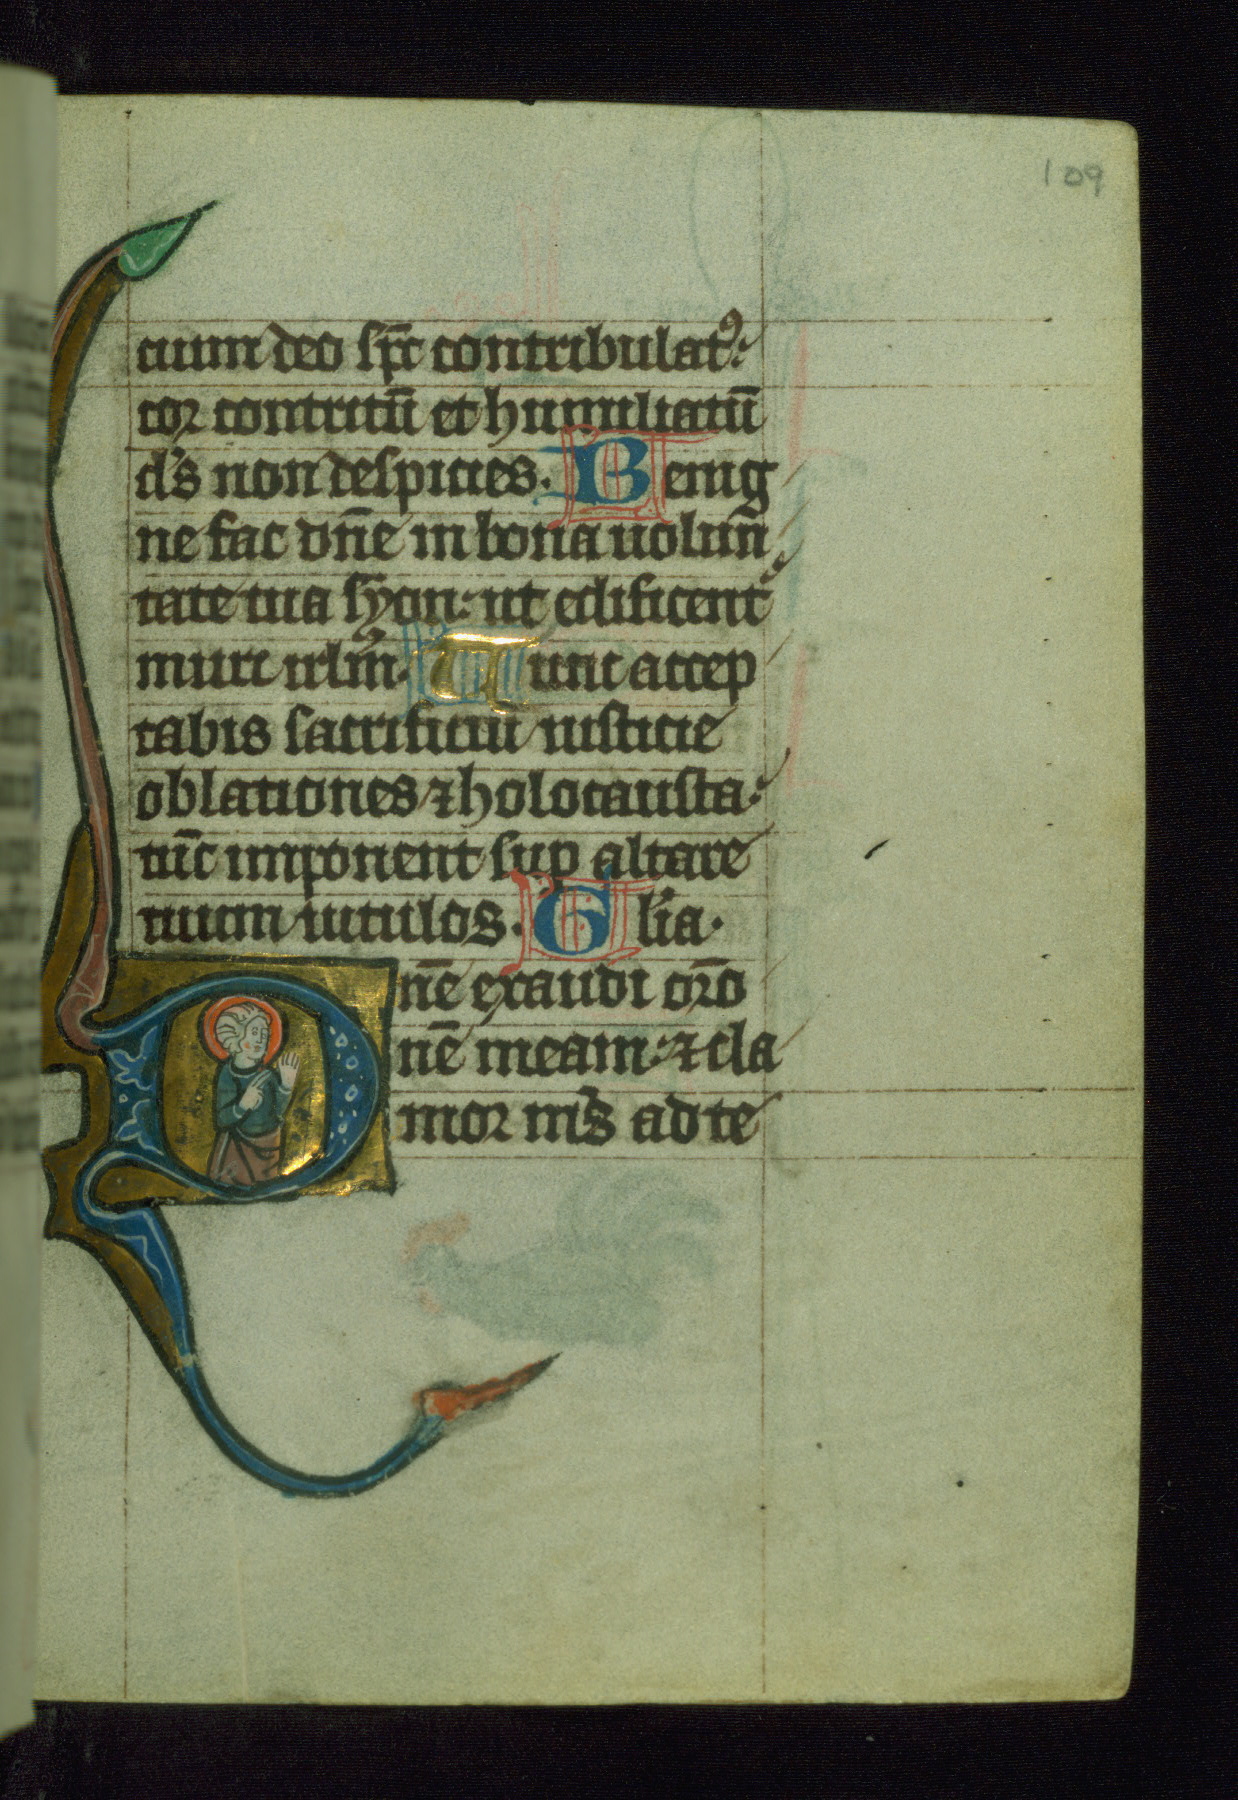 109
cium deo sp̄c contribulatꝰ:
cor contritū et humiliatū
ds̕ non despicies. Benig
ne fac dn̄e in bona uolun̄
tate tua syon: ut edificent᷑
muri irlm̄. Tunc accep
tabis sacrificiū iusticie
oblationes ⁊ holocausta:
tūc imponent sup altare
tuum uitulos. Gl̕ia.
Dn̄e exaudi or̄o
nē meam: ⁊ cla
mor ms̕ ad te